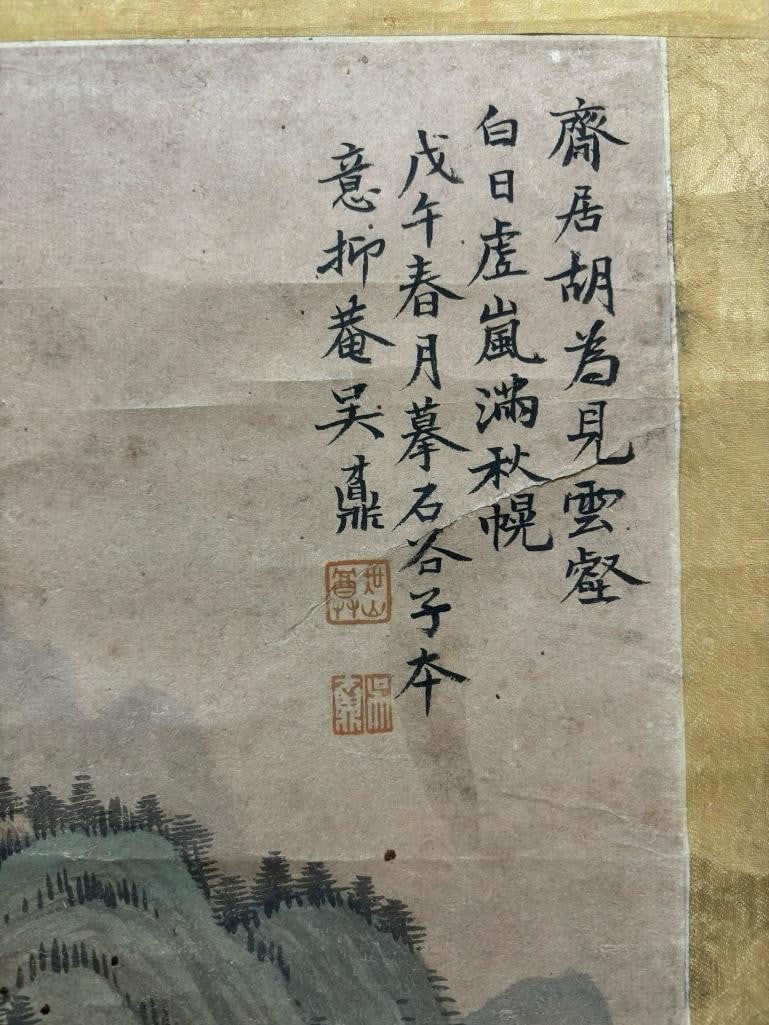 齋居胡為見雲壑
白日虛嵐滿秋幌
戊午春月摹石谷子本
意抑菴吴鼒